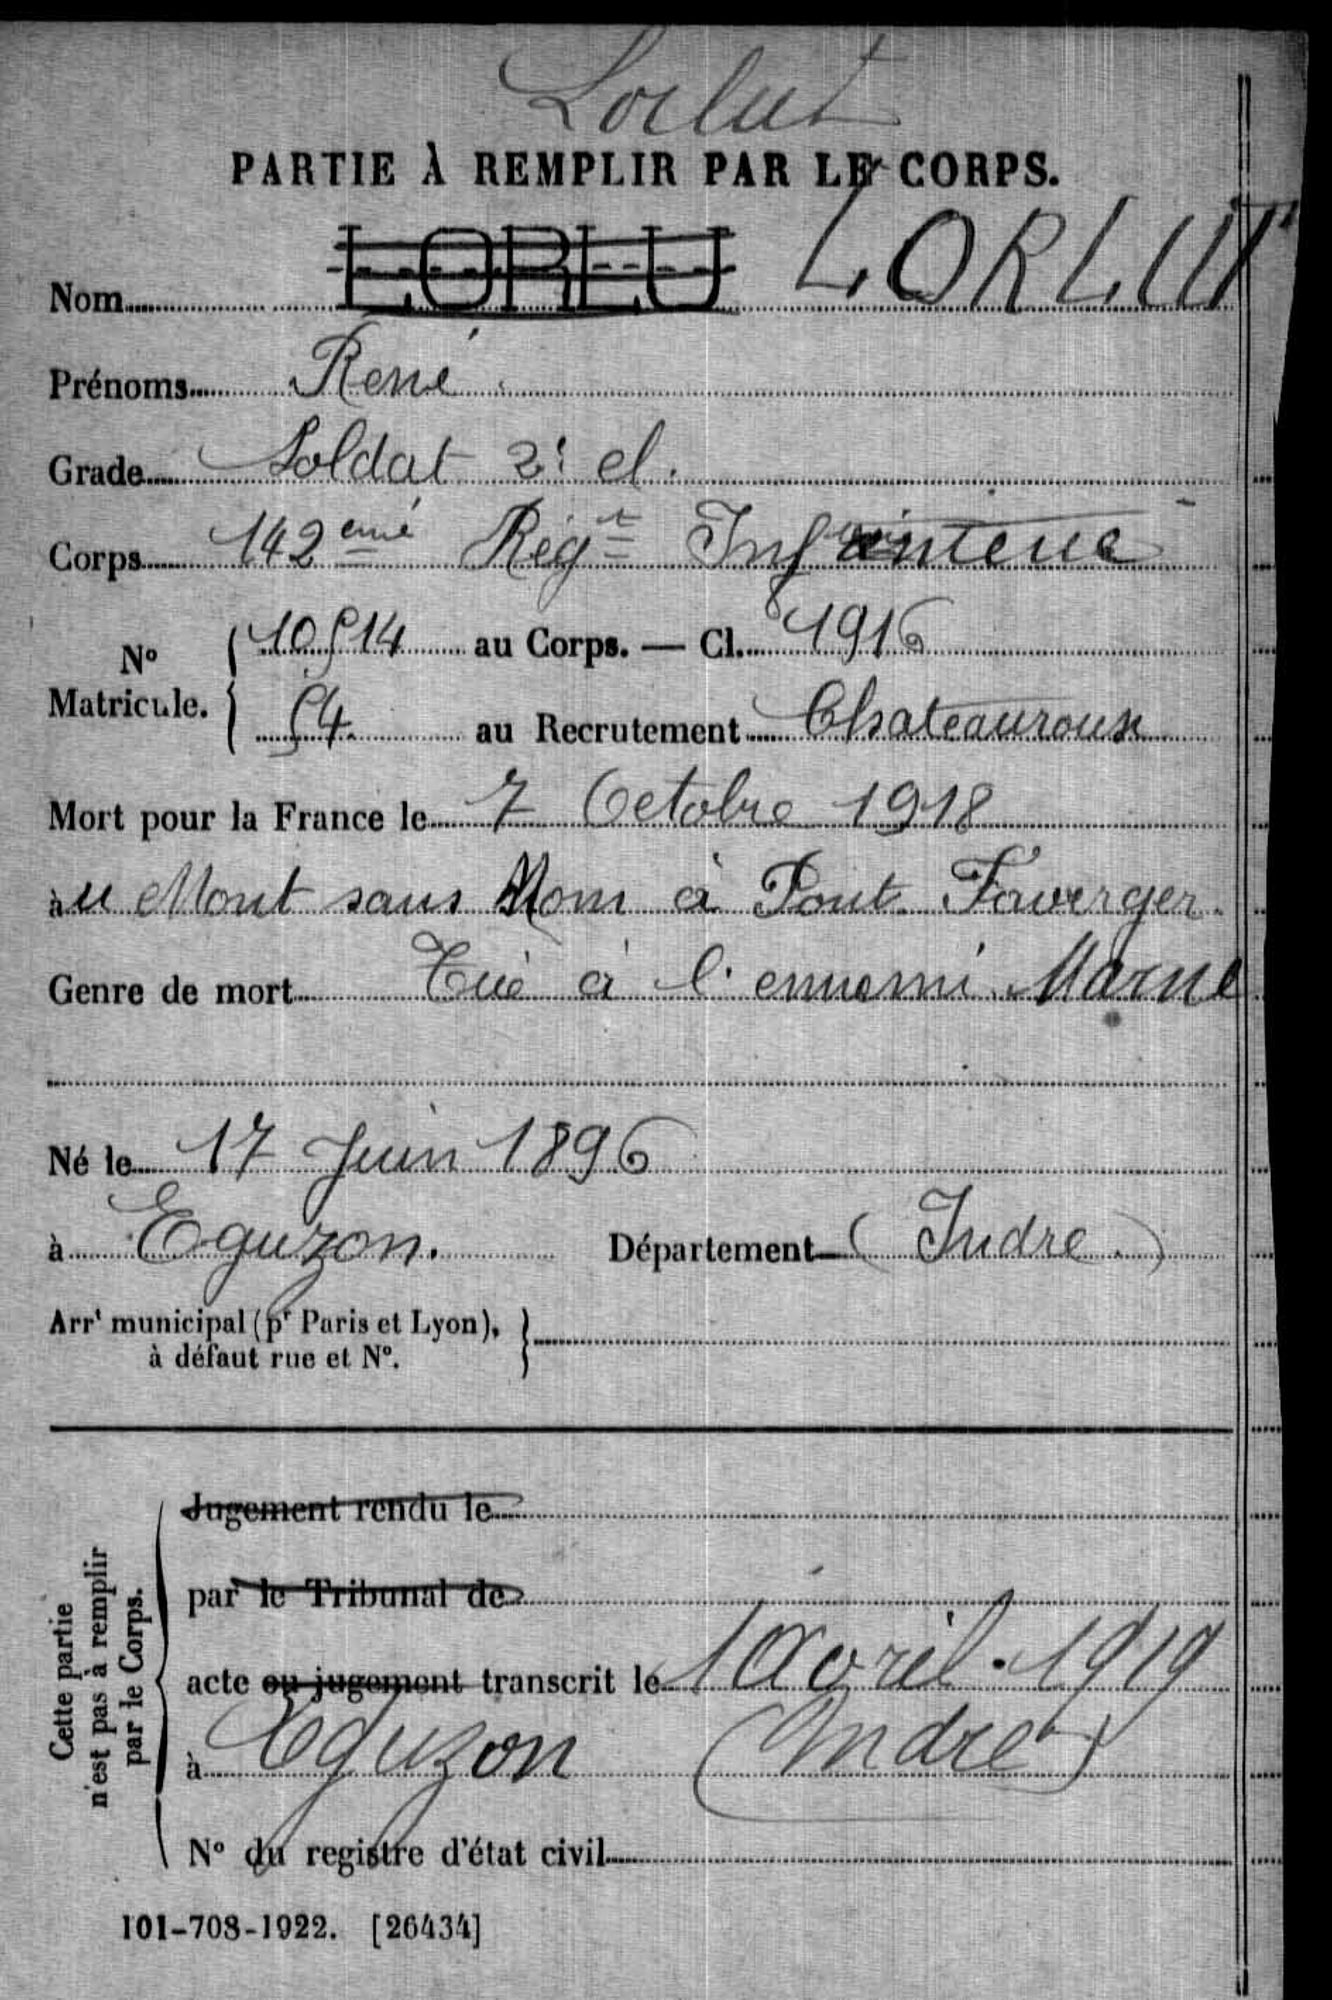 Lorlut
PARTIE À REMPLIR PAR LE CORPS.
Nom LORLU LORLUT
Prénoms René
Grade Soldat 2e cl.
Corps 142eme Régt Infanterie
N° Matricule. { 10514 au Corps. — Cl. 1916
54. au Recrutement Chateauroux
Mort pour la France le 7 Octobre 1918
au Mont sans Nom à Pont Faverger.
Genre de mort Tué à l'ennemi Marne
Né le 17 Juin 1896
à Eguzon. Département (Indre)
Arrt municipal (pr Paris et Lyon),
à défaut rue et N°.
Cette partie
n'est pas à remplir
par le Corps.
Jugement rendu le
par le Tribunal de
acte ou jugement transcrit le 1 Avril 1919
à Eguzon (Indre)
N° du registre d'état civil
101-708-1922. [26434]